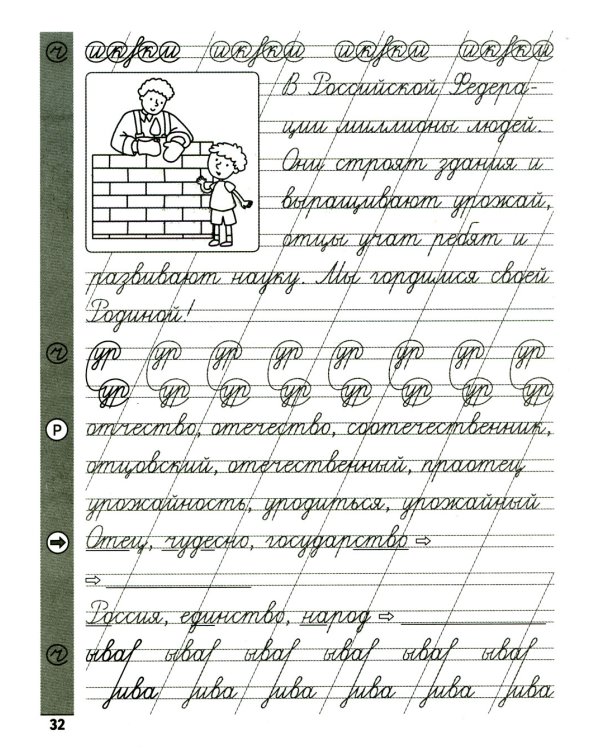 ч икжки икжки икжки икжки
В Российской Федера-
ции миллионы людей.
Они строят здания и
выращивают урожай,
отцы учат ребят и
развивают науку. Мы гордимся своей
Родиной!
ч ур ур ур ур ур ур ур ур
ур ур ур ур ур ур ур ур
Р отчество, отечество, соотечественник,
отцовский, отечественный, праотец
урожайность, уродиться, урожайный
Отец, чудесно, государство ⇨
⇨
Россия, единство, народ ⇨
ч ыва ыва ыва ыва ыва ыва
ива ива ива ива ива ива
32